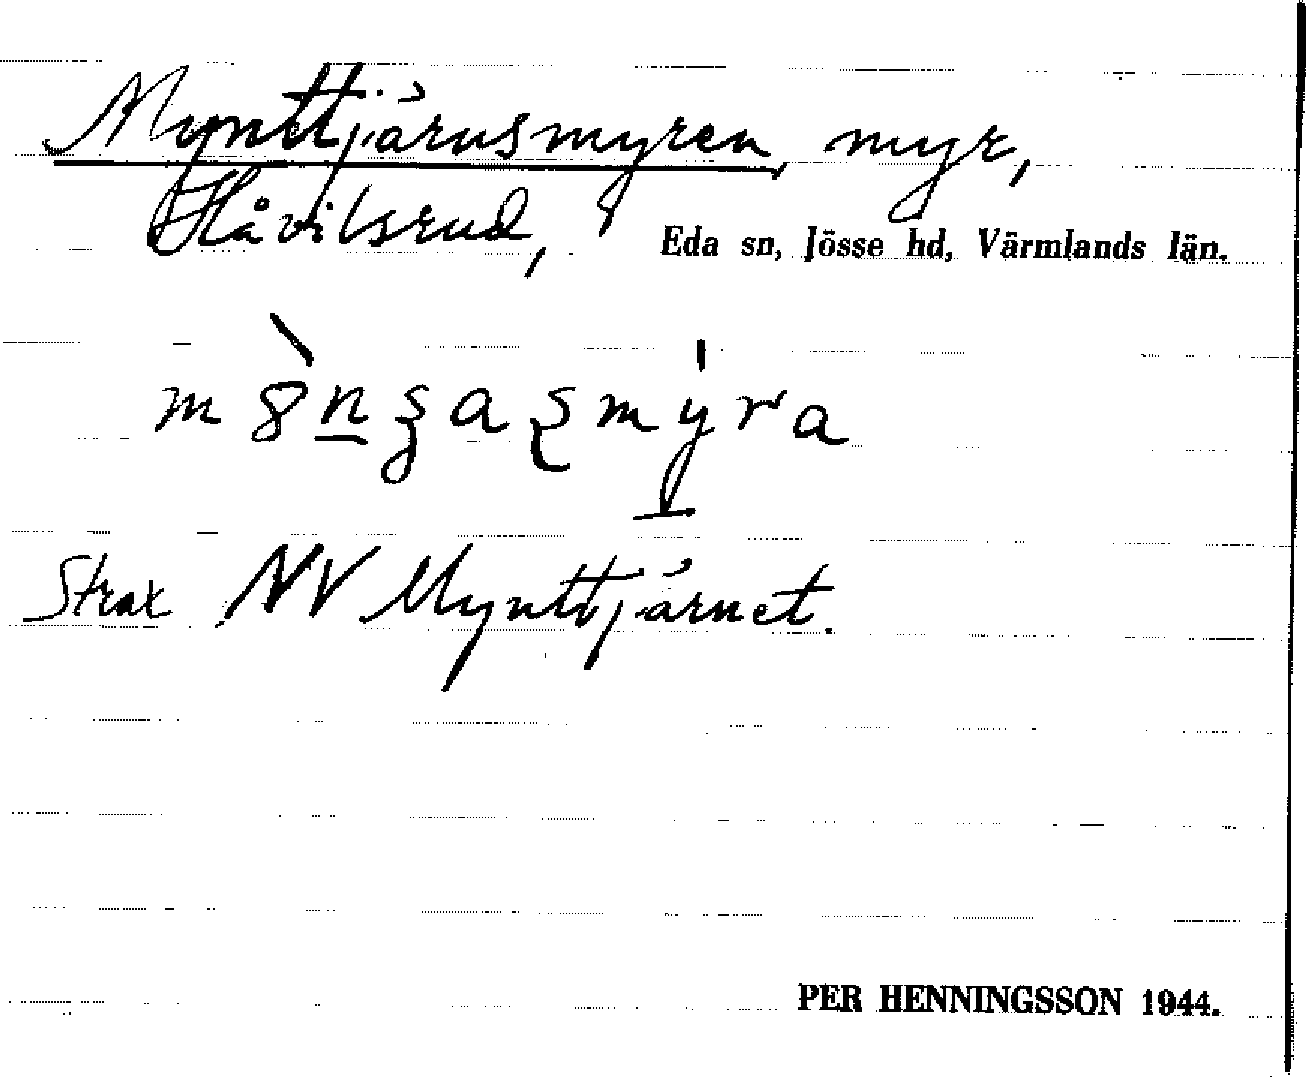 Mynttjärnsmyren, myr,
Håvilsrud,
Eda sn, Jösse hd, Värmlands län.
Strax NV Mynttjärnet.
PER HENNINGSSON 1944.